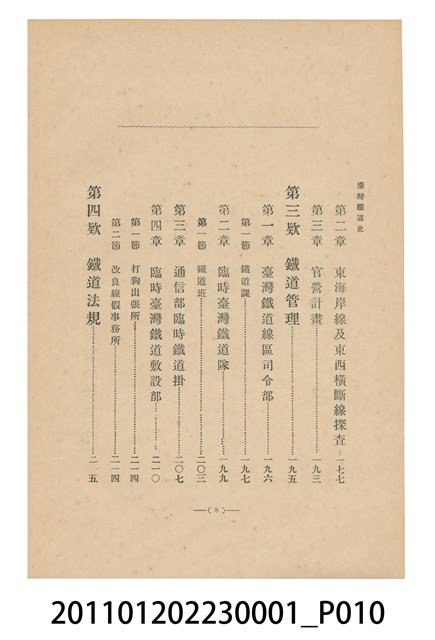 臺灣鐵道史
第二章 東海岸線及東西橫斷線探査…一七七
第三章 官營計畫…一九三
第三欵 鐵道管理…一九五
第一章 臺灣鐵道線區司令部…一九六
第一節 鐵道課…一九七
第二章 臨時臺灣鐵道隊…一九九
第一節 鐵道班…二〇三
第三章 通信部臨時鐵道掛…二〇七
第四章 臨時臺灣鐵道敷設部…二一〇
第一節 打狗出張所…二一四
第二節 改良線假事務所…二一四
第四欵 鐵道法規…二一五
—(8)—
201101202230001_P010